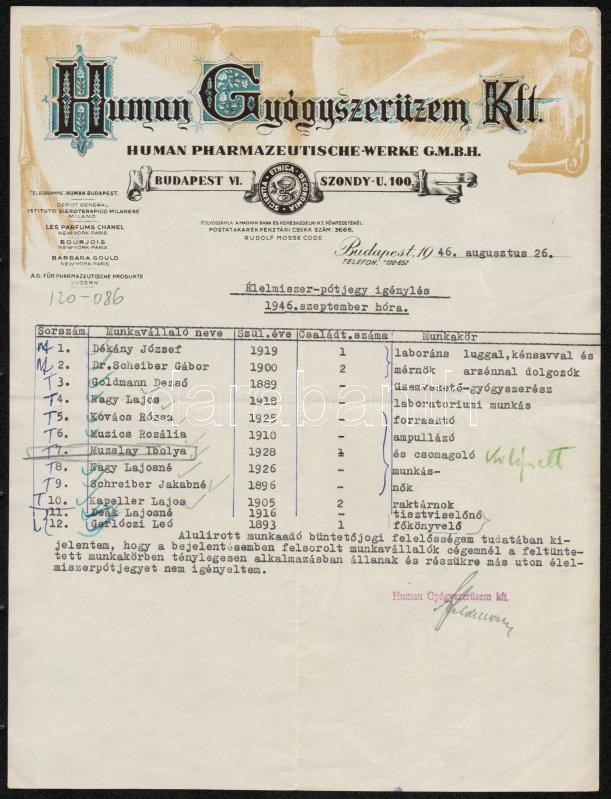 Human Gyógyszerüzem Kft.
HUMAN PHARMAZEUTISCHE-WERKE G.M.B.H.
BUDAPEST VI. SZONDY-U. 100.
SCIENTIA ETHICA OECONOMIA
TELEGRAMME: HUMAN BUDAPEST.
DEPOT GENERAL
ISTITUTO SIEROTERAPICO MILANESE
MILANO
LES PARFUMS CHANEL
NEW-YORK-PARIS
BOURJOIS
NEW-YORK-PARIS
BARBARA GOULD
NEW-YORK-PARIS
A.G. FÜR PHARMAZEUTISCHE PRODUKTE
LUZERN
120-086
FOLYÓSZÁMLA: A MAGYAR BANK ÉS KERESKEDELMI R.T. FŐINTÉZETÉNÉL
POSTATAKARÉKPÉNZTÁRI CSEKK SZÁM: 3666.
RUDOLF MOSSE CODE
Budapest, 1946. augusztus 26.
TELEFON: *120-652
Élelmiszer-pótjegy igénylés
1946.szeptember hóra.
Sorszám. Munkavállaló neve Szül.éve Családt.száma Munkakör
1. Dékány József 1919 1 laboráns luggal,kénsavval és
2. Dr.Scheiber Gábor 1900 2 mérnök arzénnal dolgozók
T 3. Goldmann Dezső 1889 - üzemvezető-gyógyszerész
T 4. Nagy Lajos 1918 - laboratoriumi munkás
T 5. Kovács Rózsa 1925 - forrasztó
T 6. Muzics Rozália 1910 - ampullázó
T 7. Muzslay Ibolya 1928 1 és csomagoló kilépett
T 8. Nagy Lajosné 1926 - munkás-
T 9. Schreiber Jakabné 1896 - nők
T 10. Kapeller Lajos 1905 2 raktárnok
11. Deák Lajosné 1916 - tisztviselőnő
12. Gerlóczi Leó 1893 1 főkönyvelő
Alulirott munkaadó büntetőjogi felelősségem tudatában ki-
jelentem, hogy a bejelentésemben felsorolt munkavállalók cégemnél a feltünte-
tett munkakörben ténylegesen alkalmazásban állanak és részükre más uton élel-
miszerpótjegyet nem igényeltem.
Human Gyógyszerüzem kft.
Goldmann
darabanth